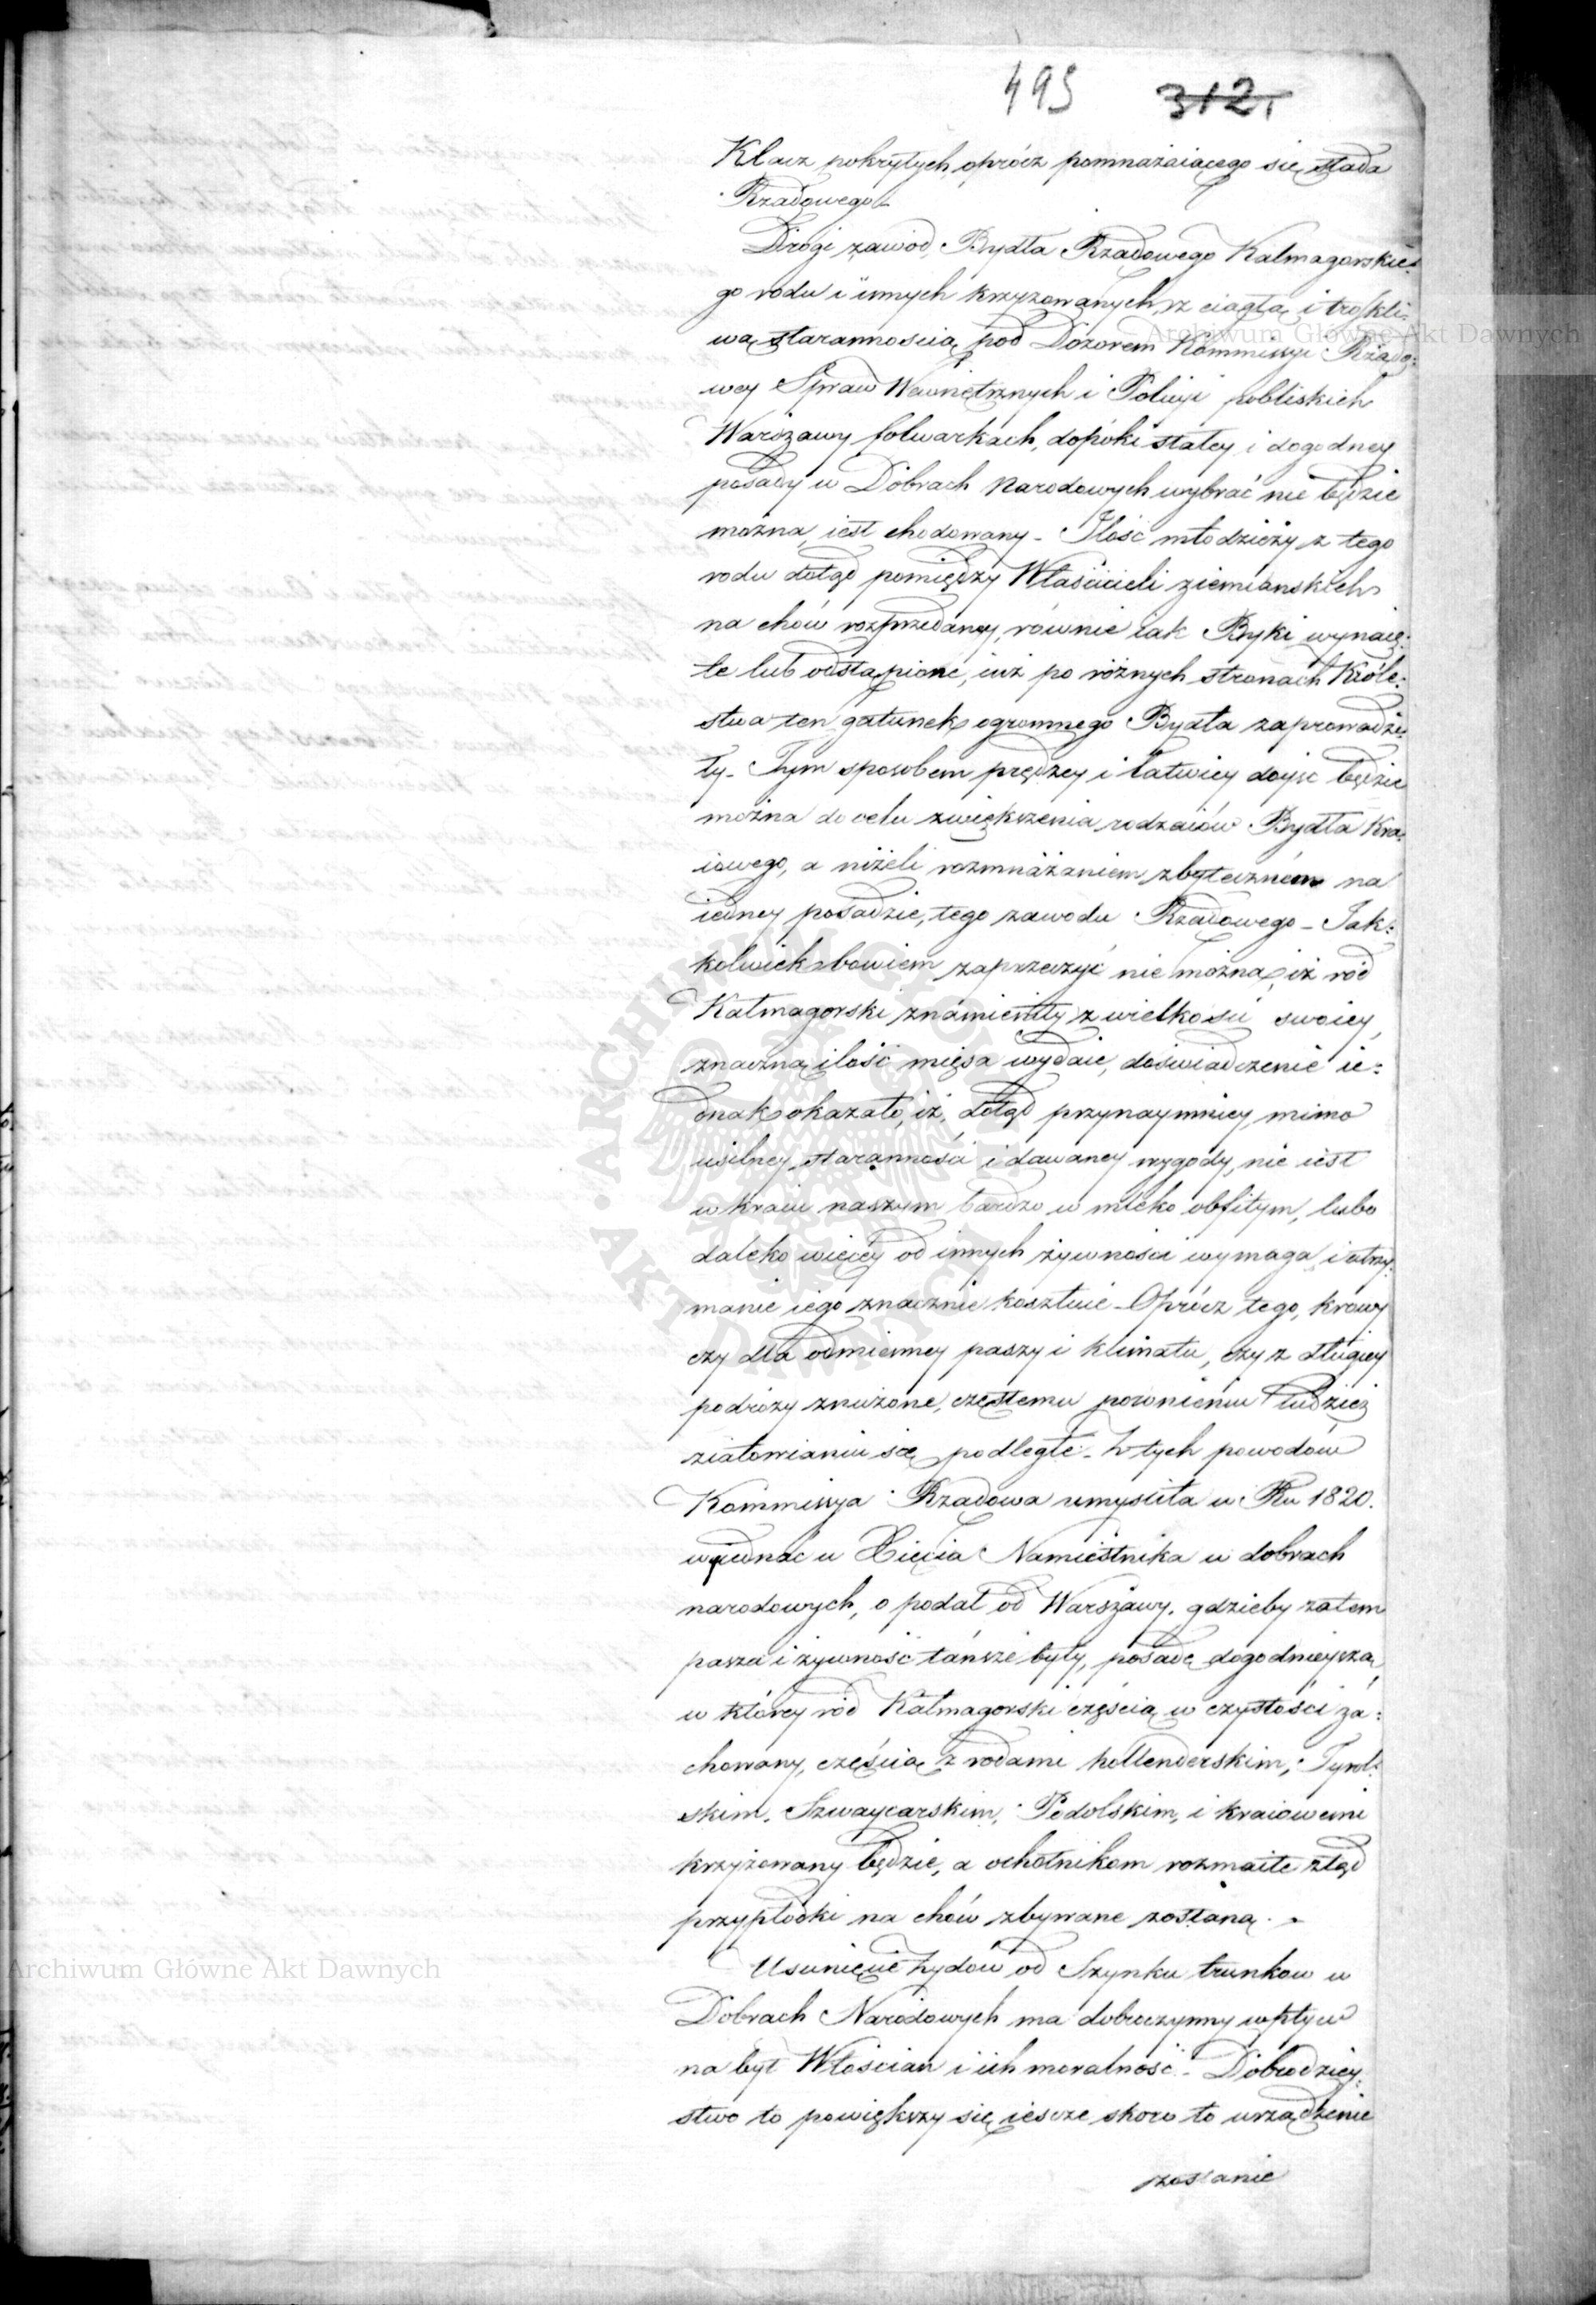 495 312.
Klacz pokrytych, oprócz pomnażaiącego się stada
Rządowego.
Drogi zawód Bydła Rządowego Kalmagorskie:
go rodu i innych krzyżowanych, z ciągłą i troskli:
wą starannością pod Dozorem Kommissyi Rządo:
wey Spraw Wewnętrznych i Policyi pobliskich
Warszawy folwarkach, dopóki stałey i dogodney
posady w Dobrach Narodowych wybrać nie będzie
można, iest chodowany - Ilość młodzieży z tego
rodu dotąd pomiędzy Właścicieli ziemianskich
na chów rozprzedaney, równie iak Byki wynaię:
te lub odstąpione, iuż po różnych stronach Króle:
stwa ten gatunek ogromnego Bydła zaprowadzi:
ły - Tym sposobem prędzey i łatwiey doyść będzie
można do celu zwiększenia rodzaiów Bydła Kra:
iowego, a niżeli rozmnażaniem zbyteczném na
iedney posadzie, tego zawodu Rządowego - Jak:
kolwiek bowiem zaprzeczyć nie można, iż ród
Kalmagorski znamienity z wielkości swoiey,
znaczną ilość mięsa wydaie, doświadczenie ie:
dnak okazało, iż, dotąd przynaymniey, mimo
usilney staranności i dawaney wygody, nie iest
w kraiu naszym bardzo w mleko obfitym, lubo
daleko więcey od innych żywności wymaga, i utrzy:
manie iego znacznie kosztuie - Oprócz tego, krowy
czy dla odmienney paszy i klimatu, czy z długiey
podróży znużone, częstemu poronieniu tudzież
ziałowianiu się podległe - Z tych powodów
Kommissya Rządowa umyśliła w Ru 1820.
wyiednać u Xięcia Namiestnika w dobrach
narodowych, o podal od Warszawy, gdzieby zatem
pasza i żywność tańsze były, posadę dogodnieyszą,
w którey ród Kalmagorski częścią w czystości za:
chowany, częścią z rodami hollenderskim, Tyrol:
skim, Szwaycarskim, Podolskim, i kraiowemi
krzyżowany będzie, a ochotnikom rozmaite ztąd
przypłodki na chów zbywane zostaną.
Usunięcie Żydów od Szynku trunkow w
Dobrach Narodowych ma dobroczynny wpływ
na byt Włościan i ich moralność - Dobrodziey:
stwo to powiększy się ieszcze skoro to urządzenie
zostanie
Archiwum Główne Akt Dawnych
Archiwum Główne Akt Dawnych
ARCHIWUM GŁÓWNE AKT DAWNYCH